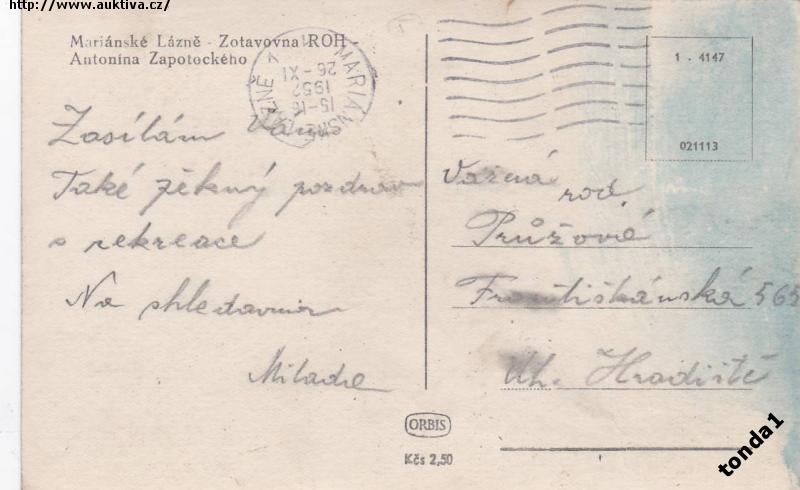 http://www.auktiva.cz/
Mariánské Lázně - Zotavovna ROH
Antonína Zapotockého
MARIÁNSKÉ LÁZNĚ 1
26 - XI
1952
15-16
1 . 4147
021113
Zasílám Vám
Také pěkný pozdrav
s rekreace
Na shledanou
Milada
Vážná
rod.
Průžové
Františkánská 565
Uh. Hradiště
ORBIS
Kčs 2,50
tonda1